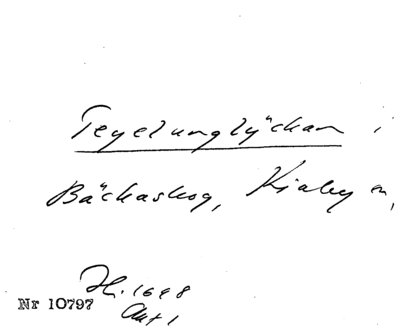 Tegelungslyckan i
Bäckaskog, Kiaby sn,
Hs. 1698
Akt 1
Nr 10797